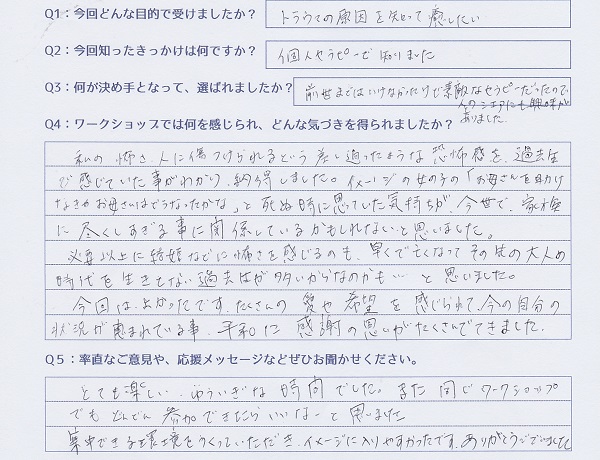 Q1：今回どんな目的で受けましたか？ トラウマの原因を知って癒したい
Q2：今回知ったきっかけは何ですか？ 個人セラピーで知りました
Q3：何が決め手となって、選ばれましたか？ 前世まではいけなかったけど素敵なセラピーだったので、
人のシェアにも興味が
ありました。
Q4：ワークショップでは何を感じられ、どんな気づきを得られましたか？
私の怖さ、人に傷つけられるという差し迫ったような恐怖感を、過去生
で感じていた事がわかり、納得しました。イメージの女の子の「お母さんを助け
なきゃお母さんはどうなったかな」と死ぬ時に思っていた気持ちが、今世で、家族
に尽くしすぎる事に関係しているかもしれないと思いました。
必要以上に結婚などに怖さを感じるのも、早くで亡くなってその先の大人の
時代を生きてない過去生が多いからなのかも…と思いました。
今回は、よかったです。たくさんの愛や希望を感じられて、今の自分の
状況が恵まれている事、平和に感謝の思いがたくさんでてきました。
Q5：率直なご意見や、応援メッセージなどぜひお聞かせください。
とても楽しい、ゆういぎな時間でした。また同じワークショップ
でもどんどん参加できたらいいなーと思いました
集中できる環境をつくっていただき、イメージに入りやすかったです。ありがとうございました